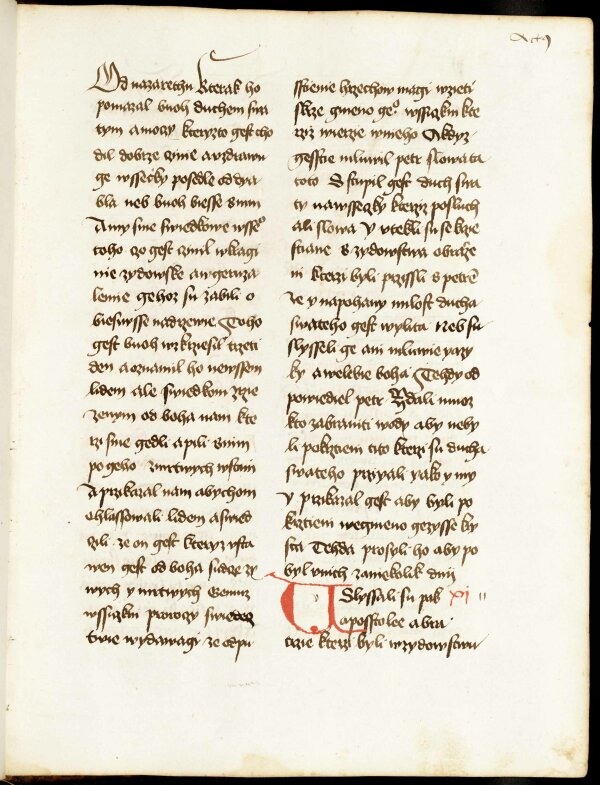 Od nazarethu kterak ho
pomazal buoh duchem swa
tym a mocy kteryzto gest cho
dil dobrze czinie a vzdrawu
ge wssecky posedle od dya
bla neb buoh biesse s nim
A my sme swiedkowe wsse⁰
toho czo gest czinil w kragi
nie zydowske a w geruza
lemie gehoz su zabili o
biesiwsse na drzewie Toho
gest buoh wzkrziesil trzeti
den a oznamil ho ne wssem
lidem ale swiedkom zrzie
zenym od boha nam kte
rzi sme gedli a pili s nim
po geho zmrtwych wstani
A przikazal nam abychom
ohlassowali lidem a swied
czili ze on gest kteryz vsta
wen gest od boha sudcze zy
wych y mrtwych Gemuz
wssiczkni proroczy swiedecz
twie wydawagi ze odpu
sstienie hrzechow magi wzieti
skrze gmeno ge⁰ wssiczkni kte
rziz wierzie w nieho A kdyz
gesstie mluwil petr slowa ta
toto Sstupil gest duch swa
ty na wsseczky kterziz posluch
ali slowa Y vtekli su se krze
stiane s zydowstwa obraze
ni kterzi byli przissli s petrē
ze y na pohany milost ducha
swateho gest wylita Neb su
slysseli ge ani mluwie yazy
ky a welebie boha Tehdy od
powiediel petr Zdali muoz
kto zabraniti wody aby neby
li pokrztieni tito kterzi su ducha
swateho przyyali yako y my
Y przikazal gest aby byli po
krztieni we gmeno gezysse ky
sta Tehda prosyli ho aby po
byl v nich za niekolik dnij
Uslyssali su pak xi
aposstolee a bra
trzie kterzi byli w zydowstwu